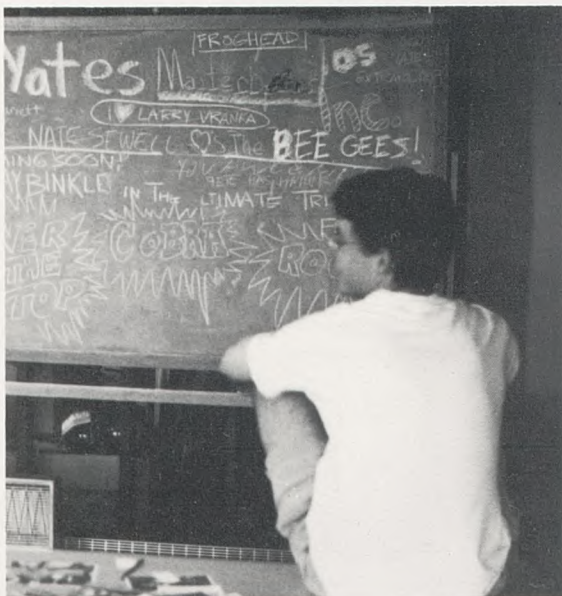 FROGHEAD
Yates
OS
Inc.
I ♥ LARRY VRANFA
NATE SEWELL ♡'S The BEE GEES!
ING SOON!
AY BINKLE IN THE LTIMATE TRI
VER THE TOP
COBRA
RO